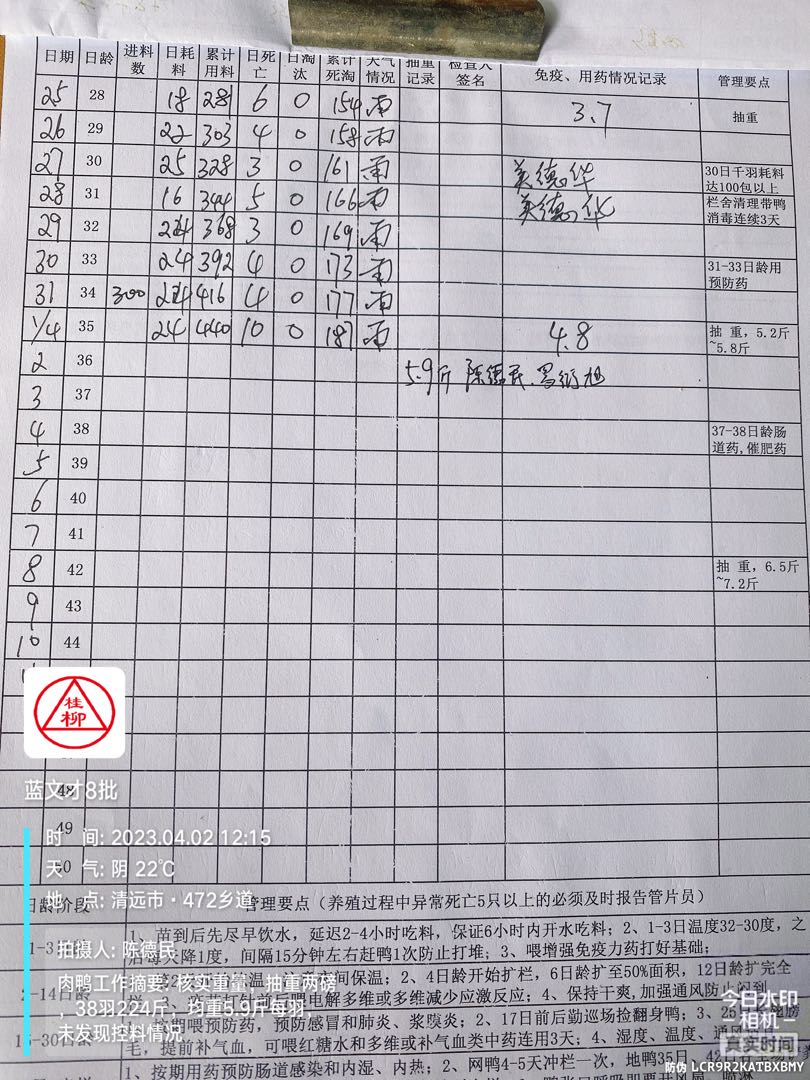 日期 日龄 进料数 日耗料 累计用料 日死亡 日淘汰 累计死淘 天气情况 抽重记录 检查人签名 免疫、用药情况记录 管理要点
25 28 18 281 6 0 154 雨 3.7 抽重
26 29 22 303 4 0 158 雨
27 30 25 328 3 0 161 雨 美德华 30日千羽耗料达100包以上
28 31 16 344 5 0 166 雨 美德华 栏舍清理带鸭消毒连续3天
29 32 24 368 3 0 169 雨
30 33 24 392 4 0 173 雨 31-33日龄用预防药
31 34 300 24 416 4 0 177 雨
1/4 35 24 440 10 0 187 雨 4.8 抽 重，5.2斤~5.8斤
2 36 5.9斤 陈德民
3 37
4 38 37-38日龄肠道药,催肥药
5 39
6 40
7 41
8 42 抽 重，6.5斤~7.2斤
9 43
10 44
桂柳
蓝文才8批
48
49
时 间: 2023.04.02 12:15
天 气: 阴 22℃
地 点: 清远市·472乡道
拍摄人: 陈德民
肉鸭工作摘要: 核实重量，抽重两磅
，38羽224斤，均重5.9斤每羽，
未发现控料情况
日龄阶段 管理要点（养殖过程中异常死亡5只以上的必须及时报告管片员）
1、苗到后先尽早饮水，延迟2-4小时吃料，保证6小时内开水吃料；2、1-3日温度32-30度，之
降1度，间隔15分钟左右赶鸭1次防止打堆；3、喂增强免疫力药打好基础；
2-14日龄 间保温；2、4日龄开始扩栏，6日龄扩至50%面积，12日龄扩完全
喂电解多维或多维减少应激反应；4、保持干爽,加强通风防止闷到
喂预防药，预防感冒和肺炎、浆膜炎；2、17日前后勤巡场捡翻身鸭；3、25日
15-30日龄 毛，提前补气血，可喂红糖水和多维或补气血类中药连用3天；4、湿度、温度、通风
1、按期用药预防肠道感染和内湿、内热；2、网鸭4-5天冲栏一次，地鸭35日、42日
今日水印
相机
真实时间
防伪 LCR9R2KATBXBMY